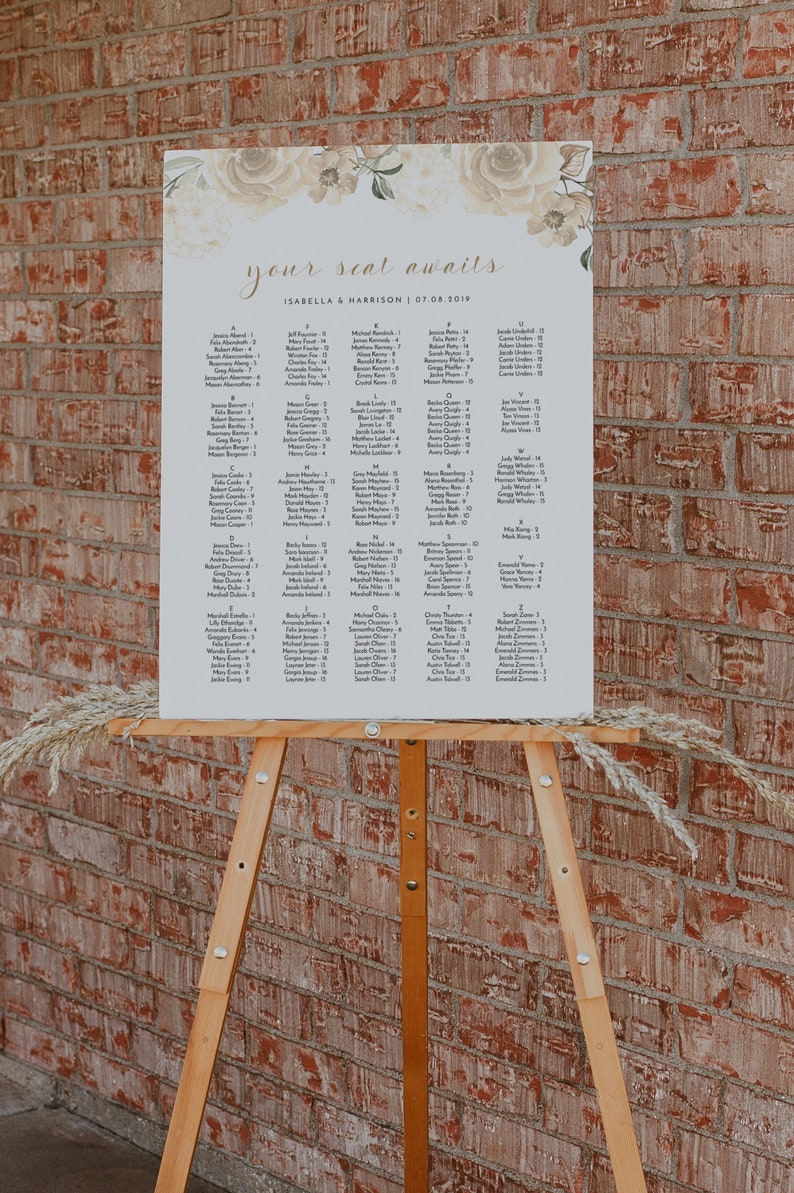 your seat awaits
ISABELLA & HARRISON | 07.08.2019
A
Jessica Abend - 1
Felix Abendroth - 2
Robert Aber - 4
Sarah Abercrombie - 1
Rosemary Aberg - 5
Greg Aberle - 7
Jacquelyn Abernathy - 6
Mason Abernathey - 6
B
Jessica Bennett - 1
Felix Benoit - 3
Robert Benson - 4
Sarah Bentley - 5
Rosemary Benton - 6
Greg Berg - 7
Jacquelyn Berger - 1
Mason Bergeron - 3
C
Jessica Cooke - 3
Felix Cooks - 6
Robert Cooley - 7
Sarah Coombs - 9
Rosemary Coon - 5
Greg Cooney - 11
Jackie Coons - 10
Mason Cooper - 1
D
Jessica Drew - 1
Felix Driscoll - 5
Andrew Driver - 6
Robert Drummond - 7
Greg Drury - 8
Rose Duarte - 4
Mary Dube - 3
Marshall Dubois - 2
E
Marshall Estrella - 1
Lilly Etheridge - 11
Amanda Eubanks - 4
Greggory Evans - 5
Felix Everett - 6
Wanda Everhart - 6
Mary Evers - 9
Jackie Ewing - 11
Mary Evers - 9
Jackie Ewing - 11
F
Jeff Fournier - 11
Mary Foust - 14
Robert Fowler - 12
Winston Fox - 13
Charles Foy - 14
Amanda Fraley - 1
Charles Foy - 14
Amanda Fraley - 1
G
Mason Greer - 2
Jessica Gregg - 2
Robert Gregory - 5
Felix Greiner - 12
Rose Grenier - 13
Jackie Gresham - 16
Mason Grey - 2
Henry Grice - 4
H
Jamie Hawley - 3
Andrew Hawthorne - 13
Jason Hay - 12
Mark Hayden - 12
Donald Hayes - 3
Rose Haynes - 3
Jackie Hays - 4
Henry Hayward - 5
I
Becky Isaacs - 12
Sara Isaacson - 11
Mark Isbell - 9
Jacob Ireland - 6
Amanda Ireland - 3
Mark Isbell - 9
Jacob Ireland - 6
Amanda Ireland - 3
J
Becky Jeffries - 3
Amanda Jenkins - 4
Felix Jennings - 5
Robert Jensen - 7
Michael Jenson - 12
Henry Jernigan - 13
Gorgia Jessup - 16
Laynee Jeter - 13
Gorgia Jessup - 16
Laynee Jeter - 13
K
Michael Kendrick - 1
James Kennedy - 4
Matthew Kenney - 7
Alissa Kenny - 8
Ronald Kent - 5
Benson Kenyon - 6
Emery Kern - 15
Crystal Kerns - 13
L
Brook Lively - 13
Sarah Livingston - 12
Blair Lloyd - 12
James Lo - 12
Jacob Locke - 14
Matthew Locket - 4
Henry Lockhart - 6
Michelle Locklear - 9
M
Grey Mayfield - 15
Sarah Mayhew - 15
Karen Maynard - 2
Robert Mayo - 9
Henry Mays - 7
Sarah Mayhew - 15
Karen Maynard - 2
Robert Mayo - 9
N
Rose Nickel - 14
Andrew Nickerson - 15
Robert Nielsen - 13
Greg Nielson - 13
Mary Nieto - 5
Marshall Nieves - 16
Felix Niles - 13
Marshall Nieves - 16
O
Michael Oaks - 2
Harry Oconnor - 5
Samantha Oleary - 6
Lauren Oliver - 7
Sarah Olsen - 13
Jacob Owens - 16
Lauren Oliver - 7
Sarah Olsen - 13
Lauren Oliver - 7
Sarah Olsen - 13
P
Jessica Pettis - 14
Felix Pettit - 2
Robert Petty - 14
Sarah Peyton - 2
Rosemary Pfeifer - 9
Greg Pfeiffer - 9
Jackie Pham - 7
Mason Petterson - 15
Q
Becka Queen - 12
Avery Quigly - 4
Becka Queen - 12
Avery Quigly - 4
Becka Queen - 12
Avery Quigly - 4
Becka Queen - 12
Avery Quigly - 4
R
Maria Rosenberg - 3
Alana Rosenthal - 5
Matthew Ross - 6
Gregg Rosser - 7
Mark Rossi - 9
Amanda Roth - 10
Jennifer Roth - 10
Jacob Roth - 10
S
Matthew Spearman - 10
Britney Spears - 11
Emerson Speed - 10
Avery Speer - 5
Jacob Spellman - 6
Carol Spence - 7
Brian Spencer - 15
Amanda Sperry - 2
T
Christy Thurston - 4
Emma Tibbetts - 5
Matt Tibbs - 12
Chris Tice - 13
Austin Tidwell - 13
Kate Tierney - 14
Chris Tice - 13
Austin Tidwell - 13
Chris Tice - 13
Austin Tidwell - 13
U
Jacob Underhill - 13
Carrie Underr - 12
Adam Underr - 12
Jacob Underr - 12
Carrie Underr - 12
V
Joe Vincent - 12
Alyssa Vines - 13
Tim Vinson - 13
Joe Vincent - 12
Alyssa Vines - 13
W
Judy Wetzel - 14
Gregg Whalen - 15
Ronald Whaley - 15
Harrison Wharton - 3
Judy Wetzel - 14
Gregg Whalen - 15
Ronald Whaley - 15
X
Mia Xiong - 2
Mark Xiong - 2
Y
Emerald Yarna - 2
Grace Yancey - 4
Hanna Yarna - 2
Vera Yancey - 4
Z
Sarah Zane - 3
Robert Zimmers - 2
Michael Zimmers - 3
Jacob Zimmers - 3
Alana Zimmers - 3
Emerald Zimmes - 3
Jacob Zimmers - 3
Alana Zimmers - 3
Emerald Zimmes - 3
Emerald Zimmes - 3